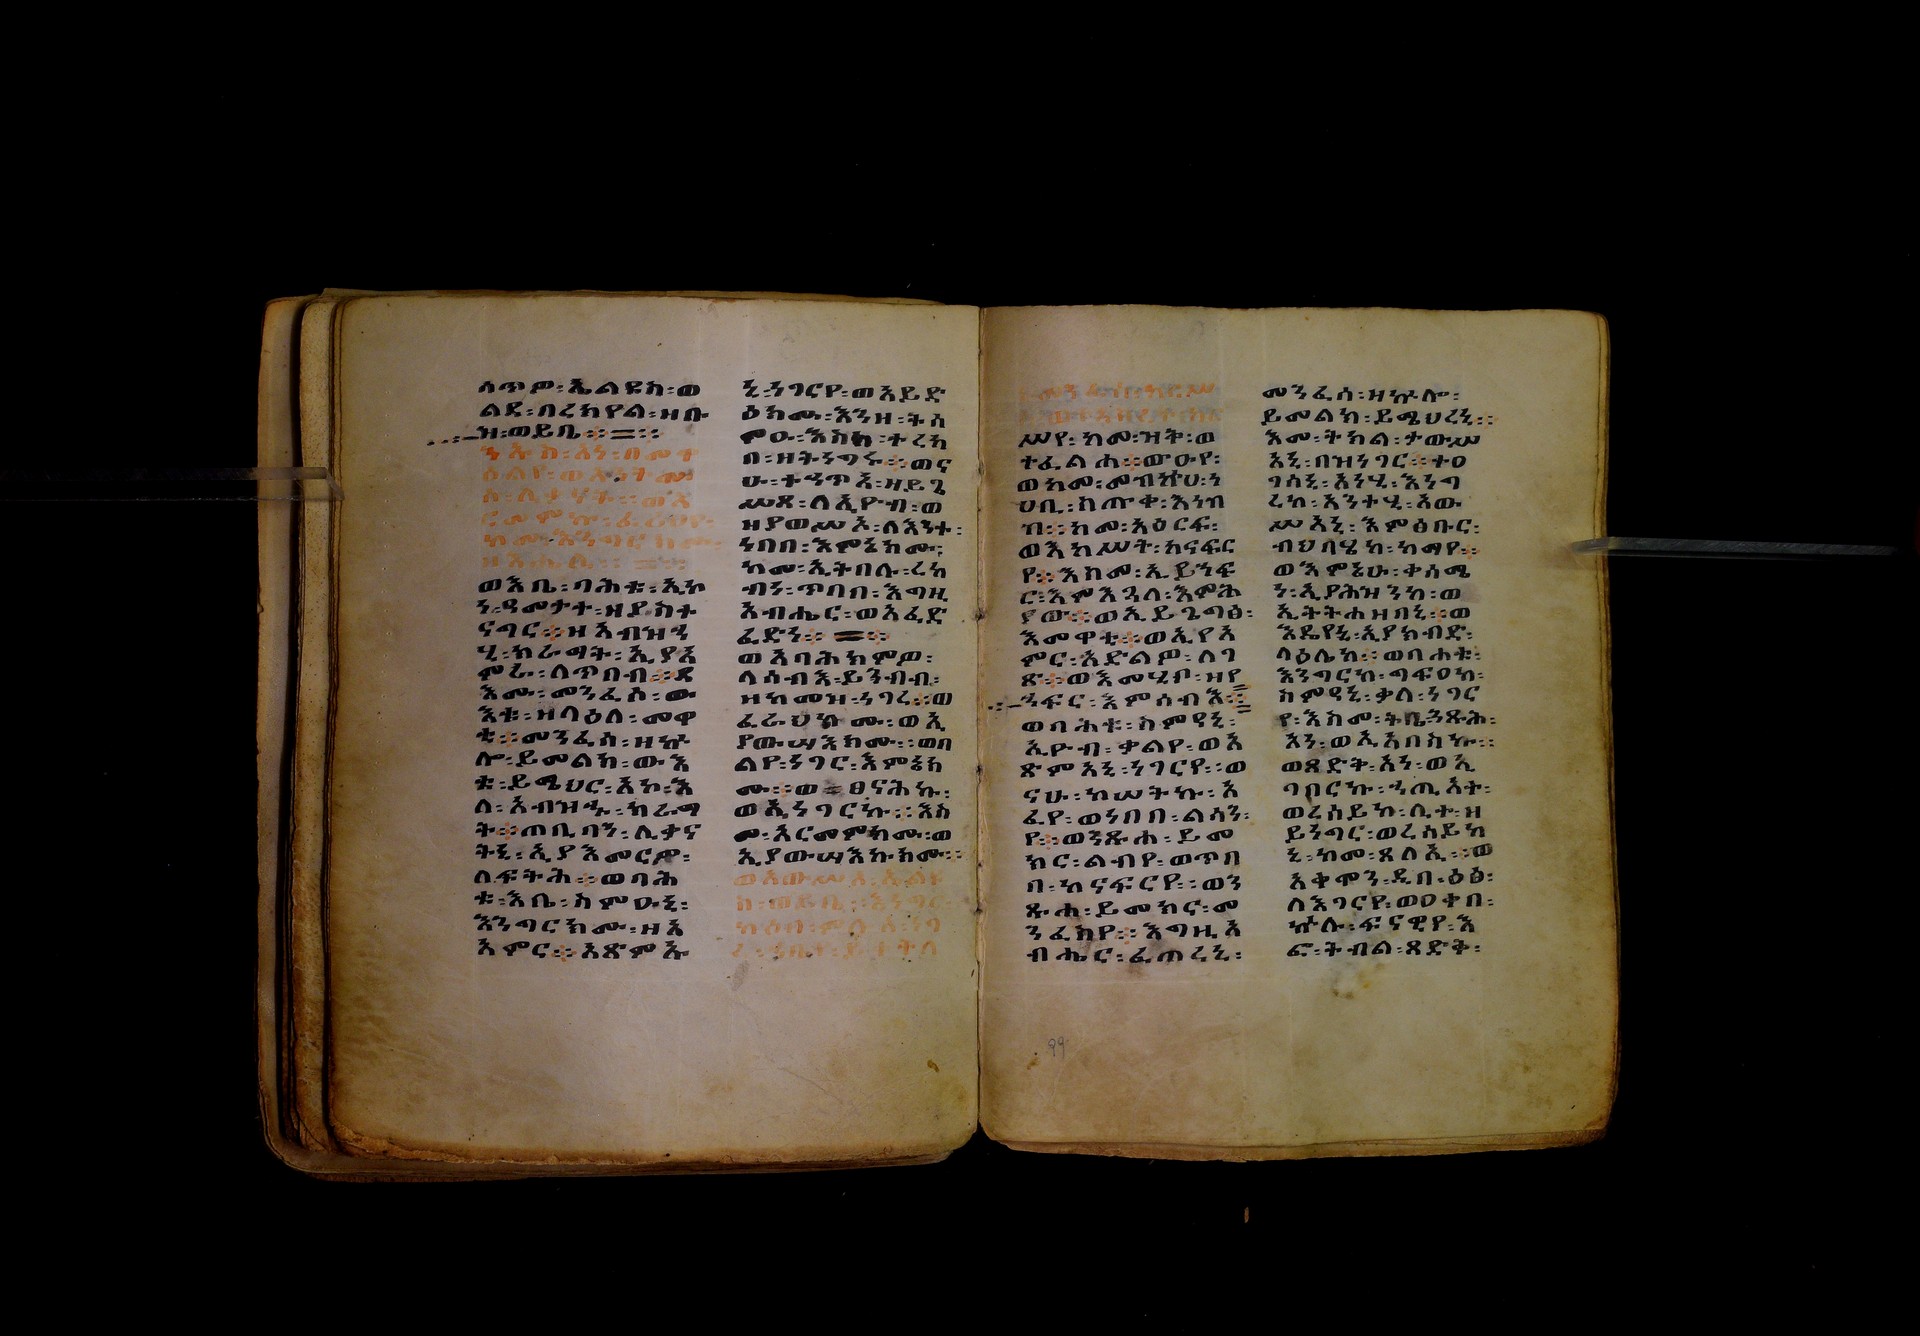 ሰጥዎ፡ኤልዩስ፡ወ
ልደ፡በረክየል፡ዘቡ
ዝ፡ወይቤ፨
ንኡስ፡አነ፡በመዋ
ዕልየ፡ወአንትሙ
ርመምኩ፡ፈሪህየ፡
ከመ፡እንግርክሙ፡
ወእቤ፡ባሕቱ፡አኮ
ን፡ዓመታተ፡ዘያስተ
ናግር፨ዘአብዝኀ
ሂ፡ክራማት፡ኢያአ
ምሩ፡ለጥበብ፨ዳ
እሙ፡መንፈስ፡ው
እቱ፡ዘላዕለ፡መዋ
ቲ፨መንፈሰ፡ዘኵ
ሎ፡ይመልክ፡ውእ
ቱ፡ይሜህር፡አኮ፡እ
ለ፡አብዝኁ፡ክራማ
ት፨ጠቢባን፡ሊቃና
ትኒ፡ኢያአመርዎ፡
ለፍትሕ፨ወባሕ
ቱ፡እቤ፡ስምዑኒ፡
እንግርክሙ፡ዘአ
አምር፨አጽምኡ
ኒ፡ነገርየ፡ወአይድ
ዕክሙ፡እንዘ፡ትሰ
ምዑ፡እስከ፡ተረክ
በ፡ዘትነግሩ፨ወና
ሁ፡ተኀጥአ፡ዘይጌ
ሠጾ፡ለኢዮብ፡ወ
ዘያወሥአ፡ለእንተ፡
ነበበ፡እምኔክሙ፡
ከመ፡ኢትበሉ፡ረከ
ብነ፡ጥበበ፡እግዚ
አብሔር፡ወአፈድ
ፈድን፨
ወእባሕክምዎ፡
ላሰብእ፡ይንብብ፡
ዘከመዝ፡ነገረ፨ወ
ፈራህክሙ፡ወኢ
ያውሣእክሙ፡ወበ
ልየ፡ነገር፡እምኔክ
ሙ፨ወ፡ፀናሕኩ፡
ወኢነገርኩ፨እስ
መ፡አርመምክሙ፡ወ
ኢያውሣእኩክሙ፨
ወአውሥአ፡ኤልዩ
ስ፡ወይቤ፡እነግር
ሥየ፡ከመ፡ዝቅ፡ወ
ተፈልሐ፨ውዑየ፡
ወከመ፡መብዙህ፡ነ
ሀቢ፡ከጡቀ፡እነብ
ብ፡ከመ፡አዕርፍ፡
ወእከሥት፡ከናፍር
የ፨እስመ፡ኢይኀፍ
ር፡እምእጓለ፡እምሕ
ያው፨ወኢይጌግፅ፡
እመዋቲ፨ወኢየአ
ምር፡አድልዎ፡ለገ
ጽ፨ወእመሂቦ፡ዘየ
ኀፍር፡እምሰብእ፨
ወባሕቱ፡ስምዓኒ፡
ኢዮብ፡ቃልየ፡ወአ
ጽምአኒ፡ነገርየ፡ወ
ናሁ፡ከሠትኩ፡አ
ፈየ፡ወነበበ፡ልሳን፡
የ፨ወንጹሐ፡ይመ
ክር፡ልብየ፡ወጥበ
በ፡ከናፍርየ፨ወን
ጹሐ፡ይመከና፡መ
ንፈስየ፨እግዚአ
ብሔር፡ፈጠረኒ፡
መንፈሰ፡ዘኵሎ፡
ይመልክ፡ይሜህረኒ፨
እመ፡ትክል፡ታውሥ
አኒ፡በዝነገር፨ተዐ
ገሰኒ፡አነሂ፡እነግ
ረከ፡አንተሂ፡አው
ሥአኒ፡እምፅቡር፡
ብህባሄ፡ከ፡ከማየ፨
ወእምኔሁ፡ቀሰሜ
ን፡ኢያሕዝንከ፡ወ
ኢትትሐዘበኒ፨ወ
እዴየኒ፡ኢያክብድ፡
ላዕሌከ፨ወባሐቱ፡
እንግርከ፡ግፍዐከ፡
ስምዓኒ፡ቃለ፡ነገር
የ፡እስመ፡ትቤ፡ንጹሕ፡
አነ፡ወኢአበስኩ፨
ወጻድቅ፡አነ፡ወኢ
ገበርኩ፡ኀጢአተ፡
ወረሰይኩ፡ሊተ፡ዘ
ይነግር፡ወረሰይከ
ኒ፡ከመ፡ጸላኢ፨ወ
አቀሞን፡ዲበ፡ዕፅ፡
ለእገርየ፡ወዐቀበ፡
ኵሉ፡ፍናዊየ፡እ
ፎ፡ትብል፡ጻድቅ፡
99